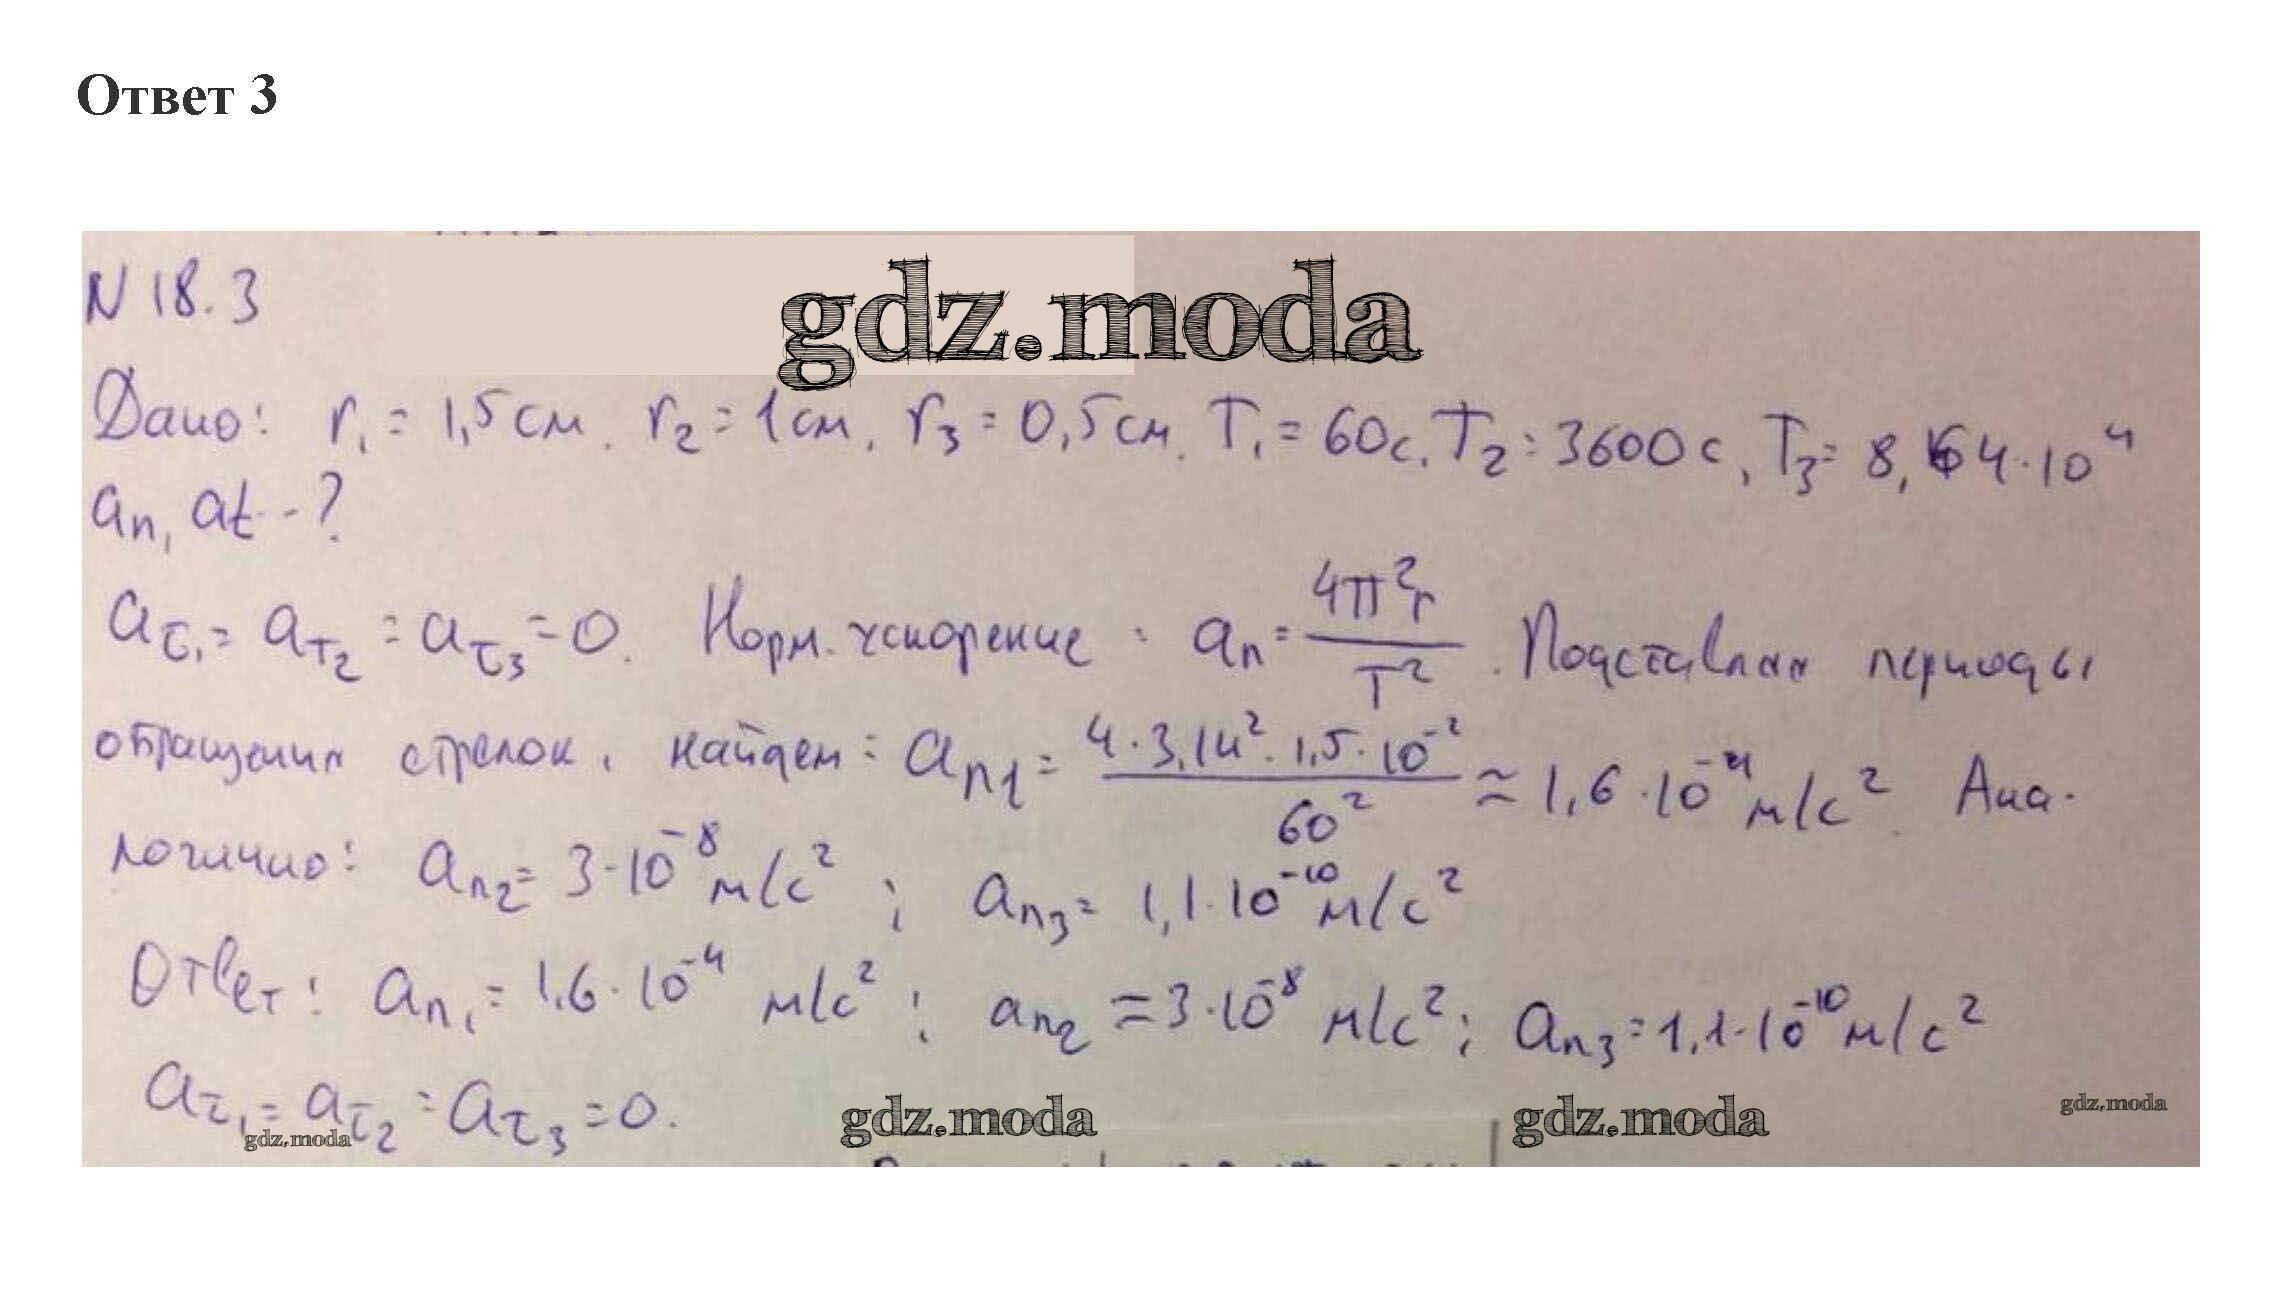 Ответ 3
gdz.moda
N 18.3
Дано: r₁ = 1,5 см. r₂ = 1 см, r₃ = 0,5 см. T₁ = 60 с. T₂ = 3600 с, T₃ = 8,64·10⁴
aₙ, at - ?
aτ₁ = aτ₂ = aτ₃ = 0. Норм. ускорение: aₙ = 4π²r / T². Подставляя периоды
обращения стрелок, найдем: aₙ₁ = 4·3,14²·1,5·10⁻² / 60² ≈ 1,6·10⁻⁴ м/с². Ана-
логично: aₙ₂ = 3·10⁻⁸ м/с²; aₙ₃ = 1,1·10⁻¹⁰ м/с²
Ответ: aₙ₁ = 1,6·10⁻⁴ м/с²; aₙ₂ ≈ 3·10⁻⁸ м/с²; aₙ₃ = 1,1·10⁻¹⁰ м/с²
aτ₁ = aτ₂ = aτ₃ = 0.
gdz.moda gdz.moda gdz.moda gdz.moda